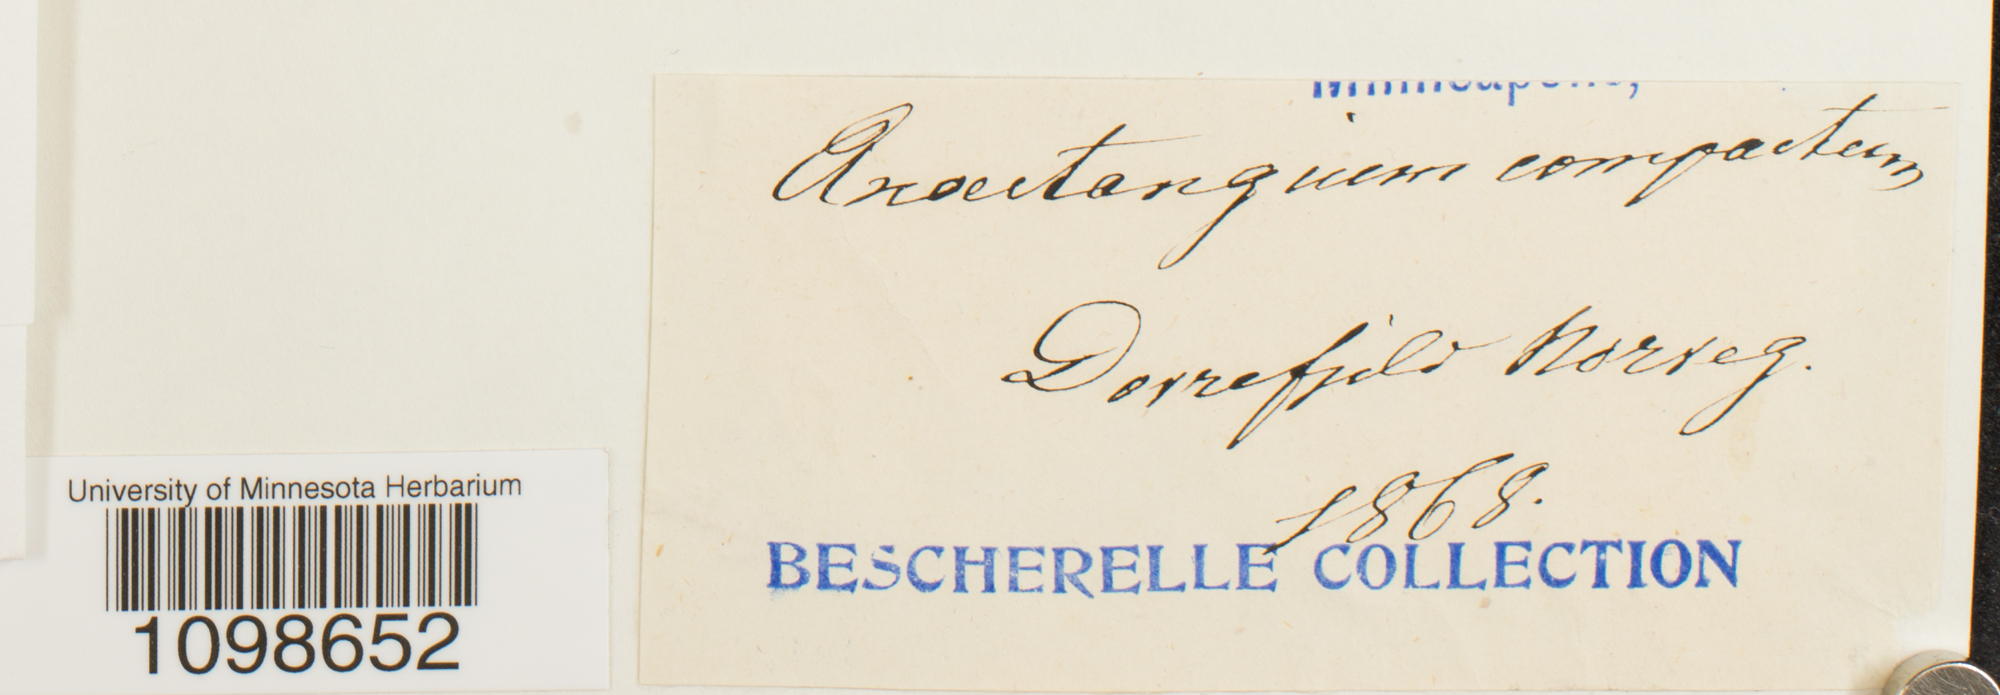 Minneapolis,
Anoectangium compactum
Dovrefjeld Norveg.
1868.
BESCHERELLE COLLECTION
University of Minnesota Herbarium
1098652